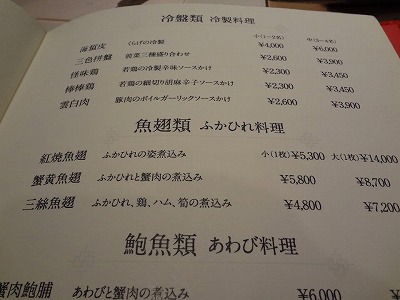 冷盤類 冷製料理
小(1~2名) 中(3~4名)
海蜇皮 くらげの冷製 ¥4,000 ¥6,000
三色拼盤 前菜三種盛り合わせ ¥2,600 ¥3,900
怪味鶏 若鶏の冷製辛味ソースかけ ¥2,300 ¥3,450
棒棒鶏 若鶏の細切り胡麻辛子ソースかけ ¥2,300 ¥3,450
雲白肉 豚肉のボイルガーリックソースかけ ¥2,600 ¥3,900
魚翅類 ふかひれ料理
紅焼魚翅 ふかひれの姿煮込み 小(1枚)¥5,300 大(1枚)¥14,000
蟹黄魚翅 ふかひれと蟹肉の煮込み ¥5,800 ¥8,700
三絲魚翅 ふかひれ、鶏、ハム、筍の煮込み ¥4,800 ¥7,200
鮑魚類 あわび料理
蟹肉鮑脯 あわびと蟹肉の煮込み ¥6,000